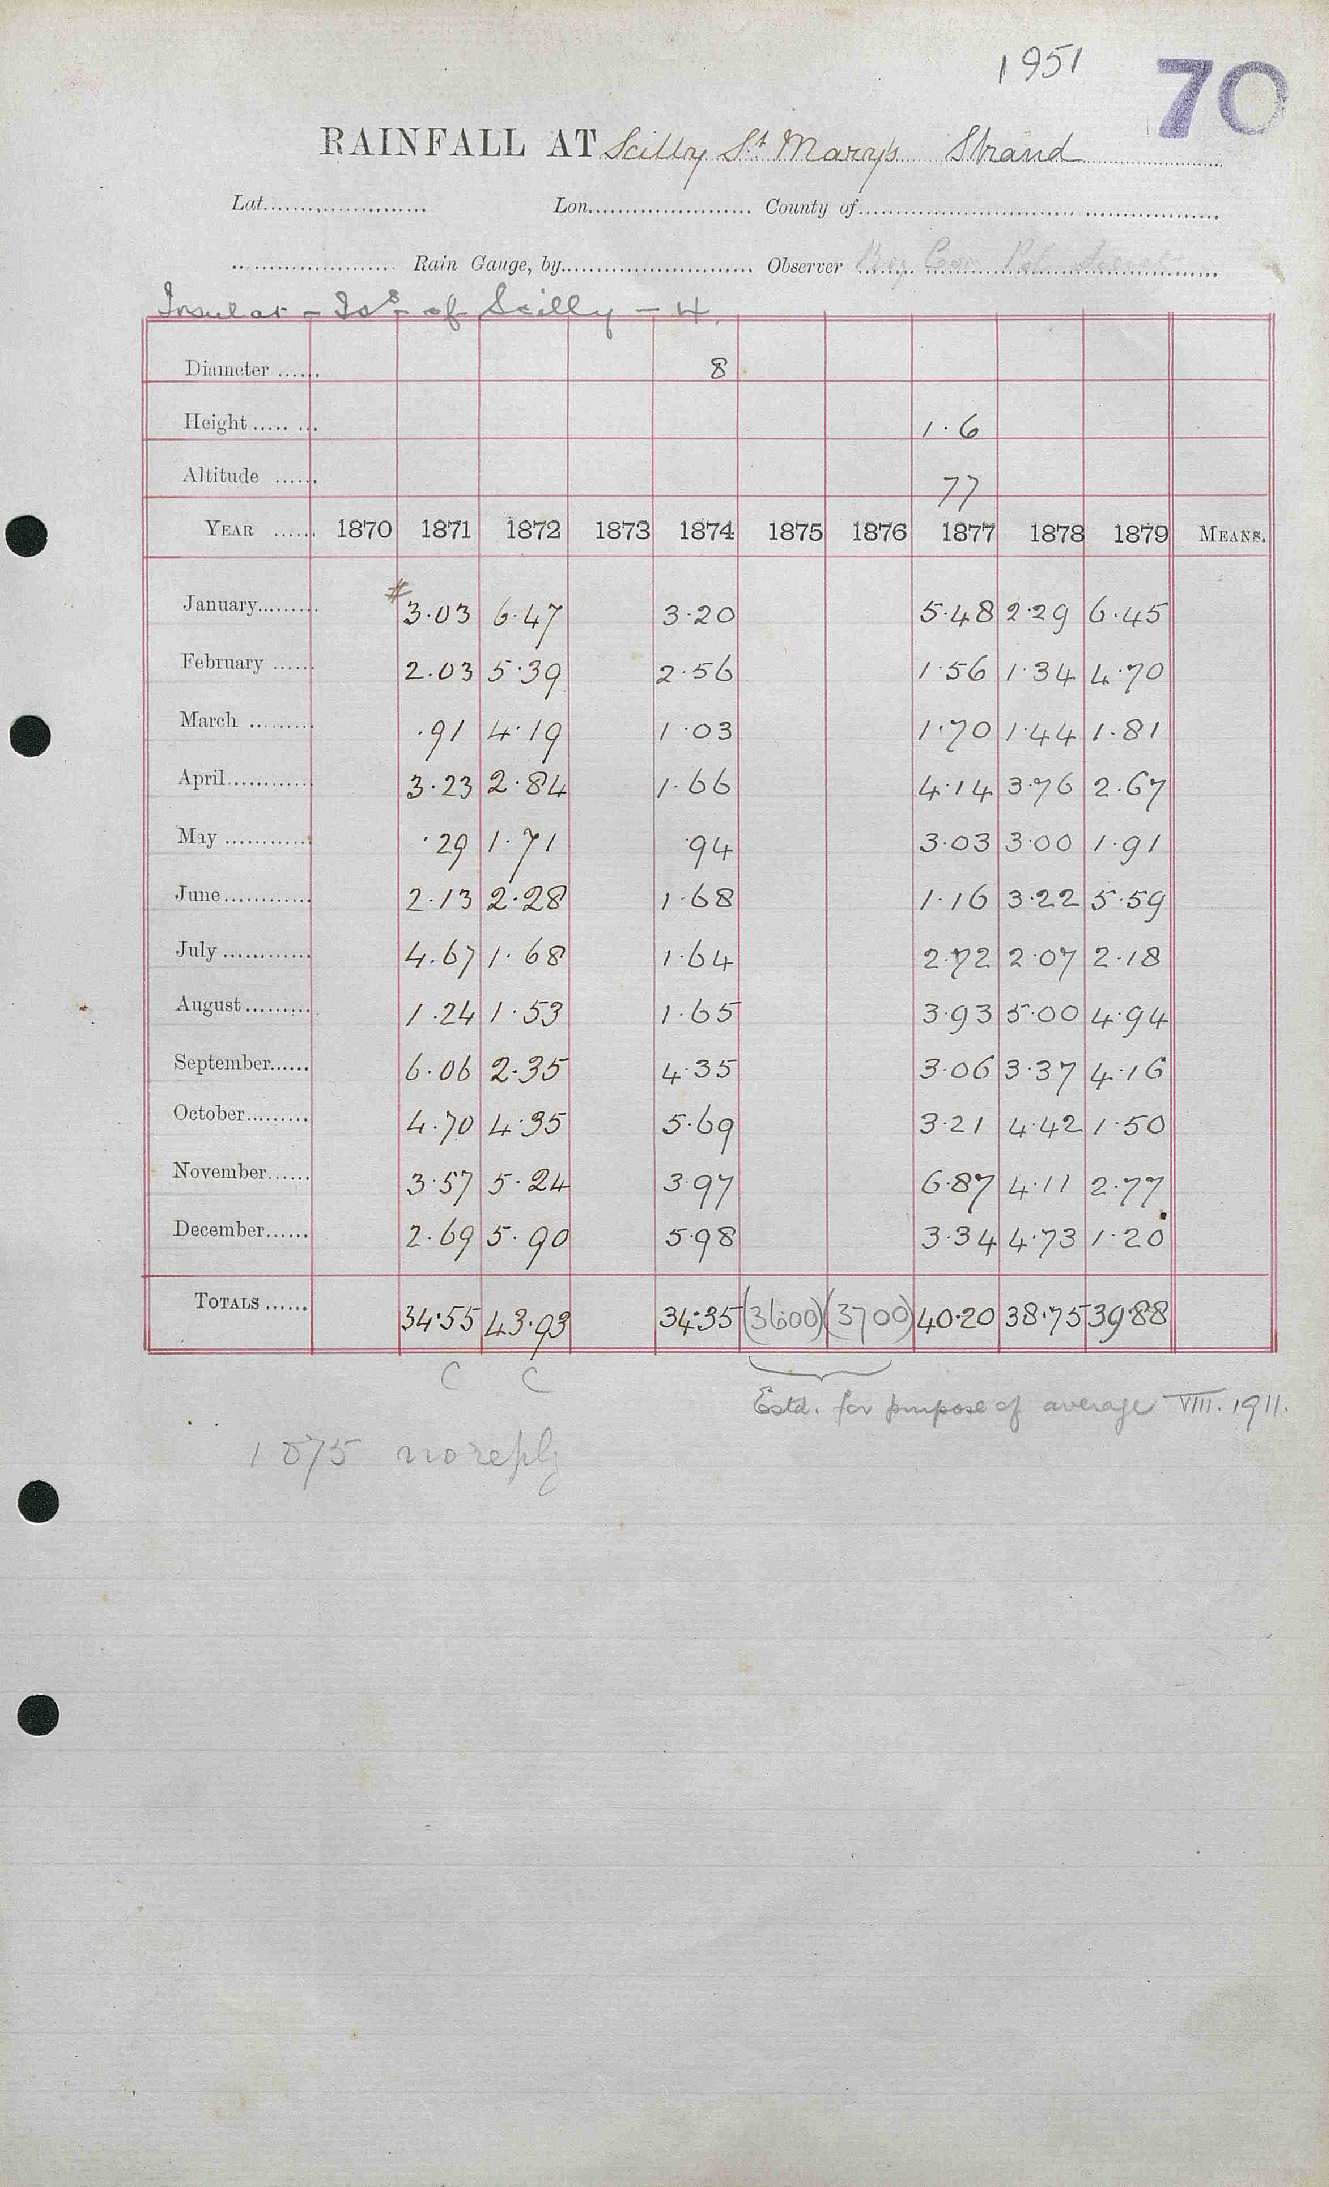 1951 70
RAINFALL AT Scilly St Mary's Strand
Lat. Lon. County of
Rain Gauge, by Observer
Insular - Is. of Scilly - 4.
Diameter 8
Height 1.6
Altitude 77
YEAR 1870 1871 1872 1873 1874 1875 1876 1877 1878 1879 MEANS.
January # 3.03 6.47 3.20 5.48 2.29 6.45
February 2.03 5.39 2.56 1.56 1.34 4.70
March .91 4.19 1.03 1.70 1.44 1.81
April 3.23 2.84 1.66 4.14 3.76 2.67
May .29 1.71 .94 3.03 3.00 1.91
June 2.13 2.28 1.68 1.16 3.22 5.59
July 4.67 1.68 1.64 2.72 2.07 2.18
August 1.24 1.53 1.65 3.93 5.00 4.94
September 6.06 2.35 4.35 3.06 3.37 4.16
October 4.70 4.35 5.69 3.21 4.42 1.50
November 3.57 5.24 3.97 6.87 4.11 2.77
December 2.69 5.90 5.98 3.34 4.73 1.20
TOTALS 34.55 43.93 34.35 (36.00) (37.00) 40.20 38.75 39.88
C C
Estd. for purpose of average VIII. 1911.
1875 no reply